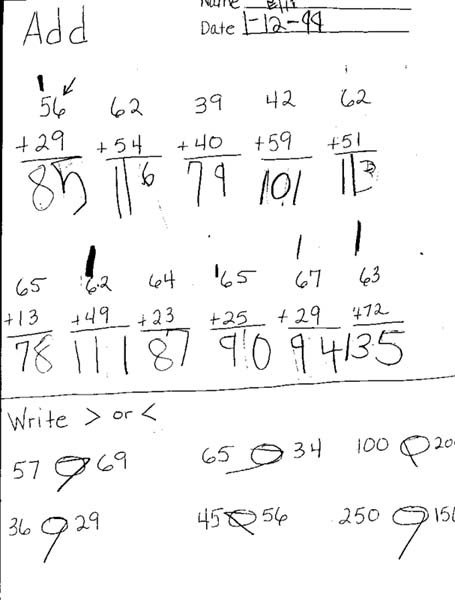 Name
Add
Date 1-12-99
1
56 62 39 42 62
+29 +54 +40 +59 +51
85 116 79 101 113
1 1 1 1
65 62 64 65 67 63
+13 +49 +23 +25 +29 +72
78 111 87 90 94 135
Write > or <
57 69 65 34 100 20
36 29 45 56 250 15